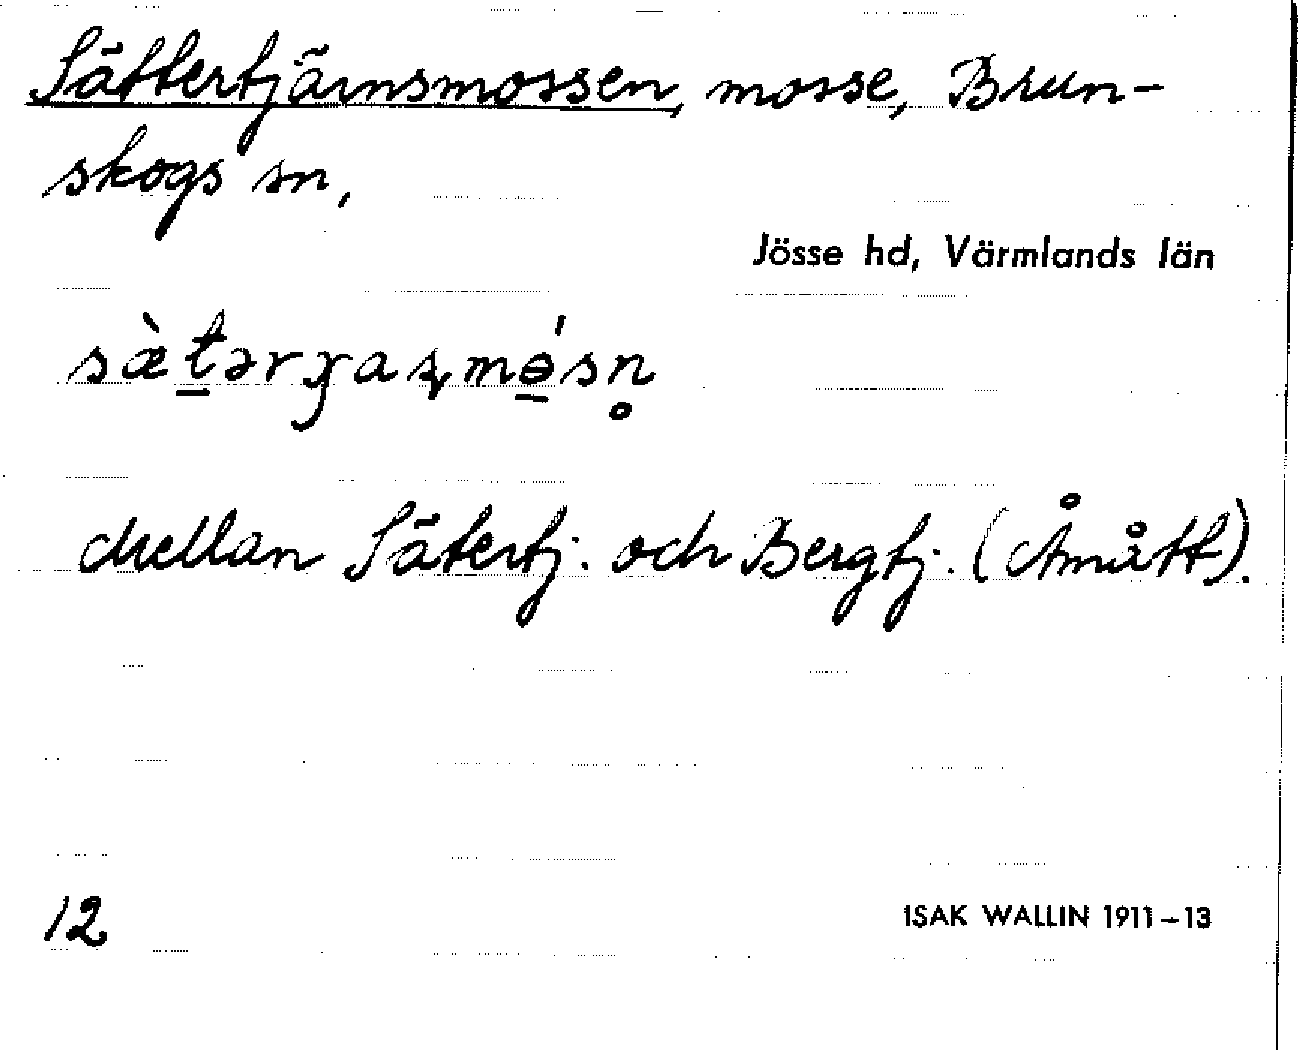 Sättertjärnsmossen, mosse, Brun-
skogs sn,
Jösse hd, Värmlands län
sæ̀t̠ərɟaʂmɵ̠́sn̥
Mellan Sätertj. och Bergtj. (Åmått).
12
ISAK WALLIN 1911–13